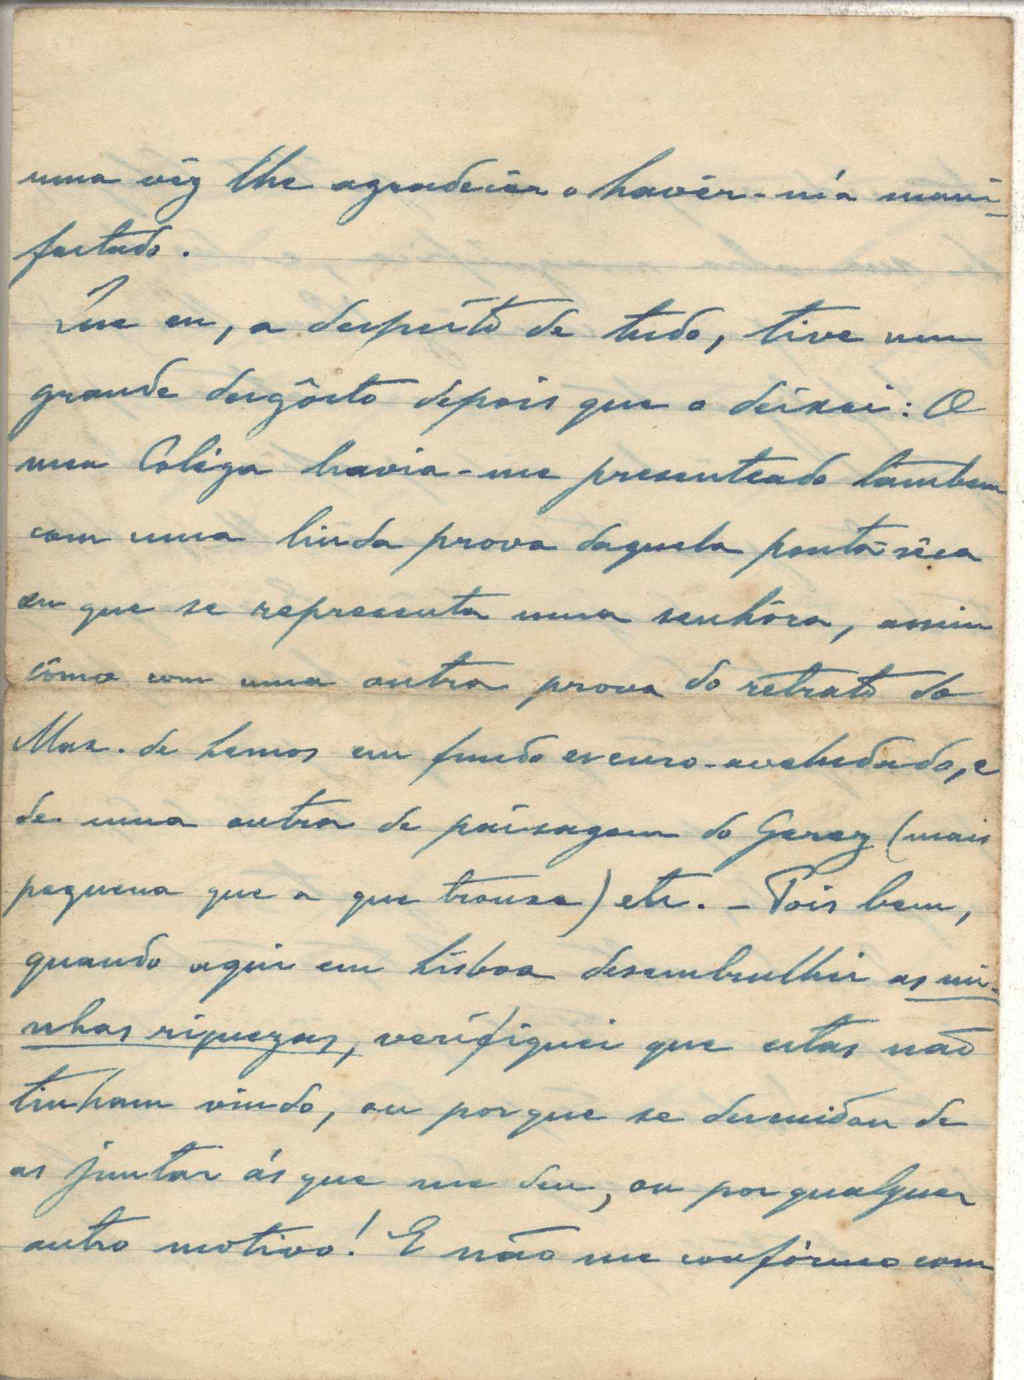 uma vêz lhe agradecêr o havêr-m'a mani-
festado.
Que eu, a despeito de tudo, tive um
grande desgôsto depois que o deixei: O
meu Coléga havia-me presenteado tambem
com uma linda prova daquela ponta-sêca
em que se representa uma senhôra, assim
cômo com uma outra prova do retrato do
Max. de Lemos em fundo escuro-aveludado, e
de uma outra de paísagem do Gerez (mais
pequena que a que trouxe) etc. - Pois bem,
quando aqui em Lisboa desembrulhei as mi-
nhas riquezas, verifiquei que estas não
tinham vindo, ou porque se descuidou de
as juntar ás que me deu, ou por qualquer
outro motivo! E não me confórmo com